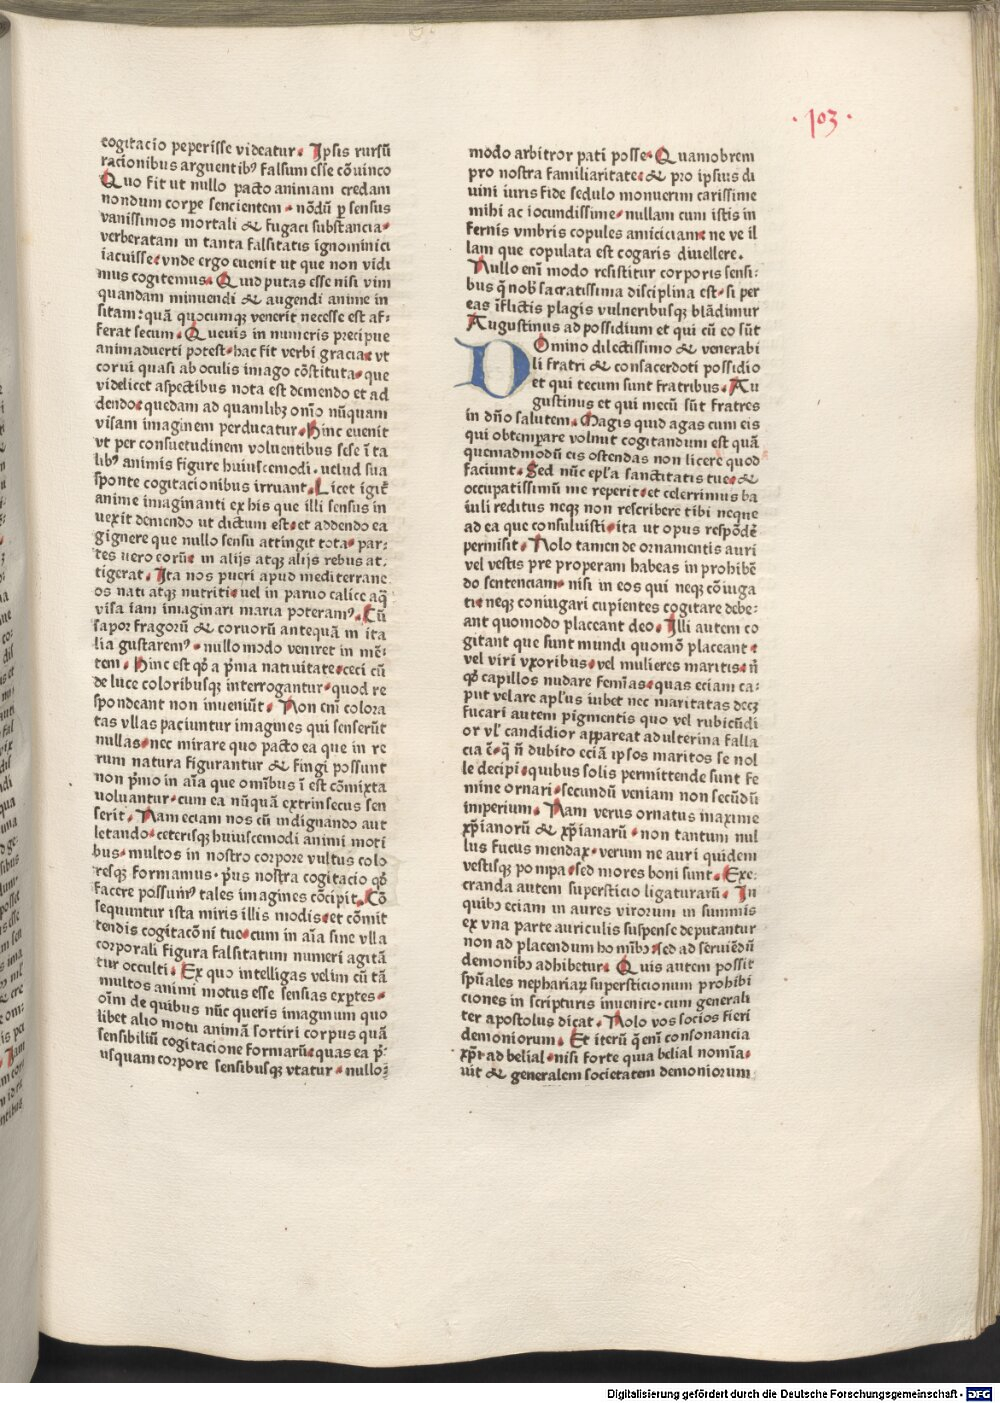 ·103·
cogitacio peperisse videatur. Ipsis rursū
racionibus arguentibꝰ falsum esse cōuinco
Quo fit ut nullo pacto animam credam
nondum corpore sencientem. nōdū ꝑ sensus
vanissimos mortali & fugaci substancia.
verberatam in tanta falsitatis ignominia
iacuisse. vnde ergo euenit ut que non vidi
mus cogitemus. Quid putas esse nisi vim
quandam minuendi & augendi anime in
sitam: quā quocumqꝫ venerit necesse est af-
ferat secum. Que uis in numeris precipue
animaduerti potest. hac fit verbi gracia. vt
corui quasi ab oculis imago cōstituta. que
videlicet aspectibus nota est demendo et ad
dendo. quedam ad quamlibꝫ om̄io nūquam
visam imaginem perducatur. Hinc euenit
vt per consuetudinem voluentibus sese ī ta
libꝰ animis figure huiuscemodi. uelud sua
sponte cogitacionibus irruant. Licet igit̄
anime imaginanti ex his que illi sensus in
uexit demendo ut dictum est. et addendo ea
gignere que nullo sensu attingit tota. par-
tes uero eorū. in alijs atqꝫ alijs rebus at-
tigerat. Ita nos pueri apud mediterrane
os nati atqꝫ nutriti. uel in paruo calice aq̄
visa iam imaginari maria poteramꝰ. Cū
sapor fragorū & coruorū antequā in ita
lia gustaremꝰ. nullo modo veniret in mē-
tem. Hinc est qꝙ a p̄ma natiuitate. ceci cū
de luce coloribusqꝫ interrogantur. quod re
spondeant non inueniūt. Non em̄ colora
tas vllas paciuntur imagines qui senserūt
nullas. nec mirare quo pacto ea que in re
rum natura figurantur & fingi possunt
non p̄mo in aīa que om̄ibus ī est cōmixta
uoluantur. cum ea nūquā extrinsecus sen
serit. Nam eciam nos cū indignando aut
letando. ceterisqꝫ huiuscemodi animi moti
bus. multos in nostro corpore vultus colo
resqꝫ formamus. p̄us nostra cogitacio qꝙ
facere possumꝰ tales imagines cōcipit. Cō
sequuntur ista miris illis modis. et cōmit
tendis cogitacōni tue. cum in aīa sine vlla
corporali figura falsitatum numeri agitā
tur occulti. Ex quo intelligas velim cū tā
multos animi motus esse sensias exp̄tes.
oīm de quibus nūc queris imaginum quo
libet alio motu animā sortiri corpus quā
sensibiliū cogitacione formarū. quas ea p̄-
usquam corpore sensibusqꝫ vtatur. nullo-
modo arbitror pati posse. Quamobrem
pro nostra familiaritate. & pro ipsius di
uini iuris fide sedulo monuerim carissime
mihi ac iocundissime. nullam cum istis in
fernis vmbris copules amiciciam. ne ve il
lam que copulata est cogaris diuellere.
Nullo em̄ modo resistitur corporis sensi-
bus q̄ nob̄ sacratissima disciplina est. si per
eas īflictis plagis vulneribusqꝫ blādimur
Augustinus ad possidium et qui cū eo sūt
DOmino dilectissimo & venerabi
li fratri & consacerdoti possidio
et qui tecum sunt fratribus. Au
gustinus et qui mecū sūt fratres
in dn̄o salutem. Magis quid agas cum eis
qui obtemꝑare volunt cogitandum est quā
quemadmodū eis ostendas non licere quod
faciunt. Sed nūc epl̄a sanctitatis tue. &
occupatissimū me reperit. et celerrimus ba
iuli reditus neqꝫ non rescribere tibi neque
ad ea que consuluisti. ita ut opus respōdē
permisit. Nolo tamen de ornamentis auri
vel vestis pre properam habeas in prohibē
do sentenciam. nisi in eos qui neqꝫ cōiuga
ti. neqꝫ coniugari cupientes cogitare debe-
ant quomodo placeant deo. Illi autem co
gitant que sunt mundi quomō placeant.
vel viri vxoribus. vel mulieres maritis. n̄
qꝙ capillos nudare femīas. quas eciam ca-
put velare apl̄us iubet nec maritatas decꝫ
fucari autem pigmentis quo vel rubicūdi
or vl̓ candidior appareat adulterina falla
cia ē. q̄ n̄ dubito eciā ipsos maritos se nol
le decipi. quibus solis permittende sunt fe
mine ornari. secundū veniam non secūdū
imperium. Nam verus ornatus maxime
xp̄ianorū & xp̄ianarū. non tantum nul
lus fucus mendax. verum ne auri quidem
vestisqꝫ pompa. sed mores boni sunt. Exe-
cranda autem supersticio ligaturarū. In
quibꝰ eciam in aures virorum in summis
ex vna parte auriculis suspense deputantur
non ad placendum hominībꝰ. sed ad seruiēdū
demonibꝰ adhibetur. Quis autem possit
spūales nephariaꝝ supersticionum prohibi
ciones in scripturis inuenire. cum generali
ter apostolus dicat. Nolo vos socios fieri
demoniorum. Et iterū q̄ em̄ consonancia
xp̄i. ad belial. nisi forte quia belial nomīa.
uit & generalem societatem demoniorum
Digitalisierung gefördert durch die Deutsche Forschungsgemeinschaft - DFG